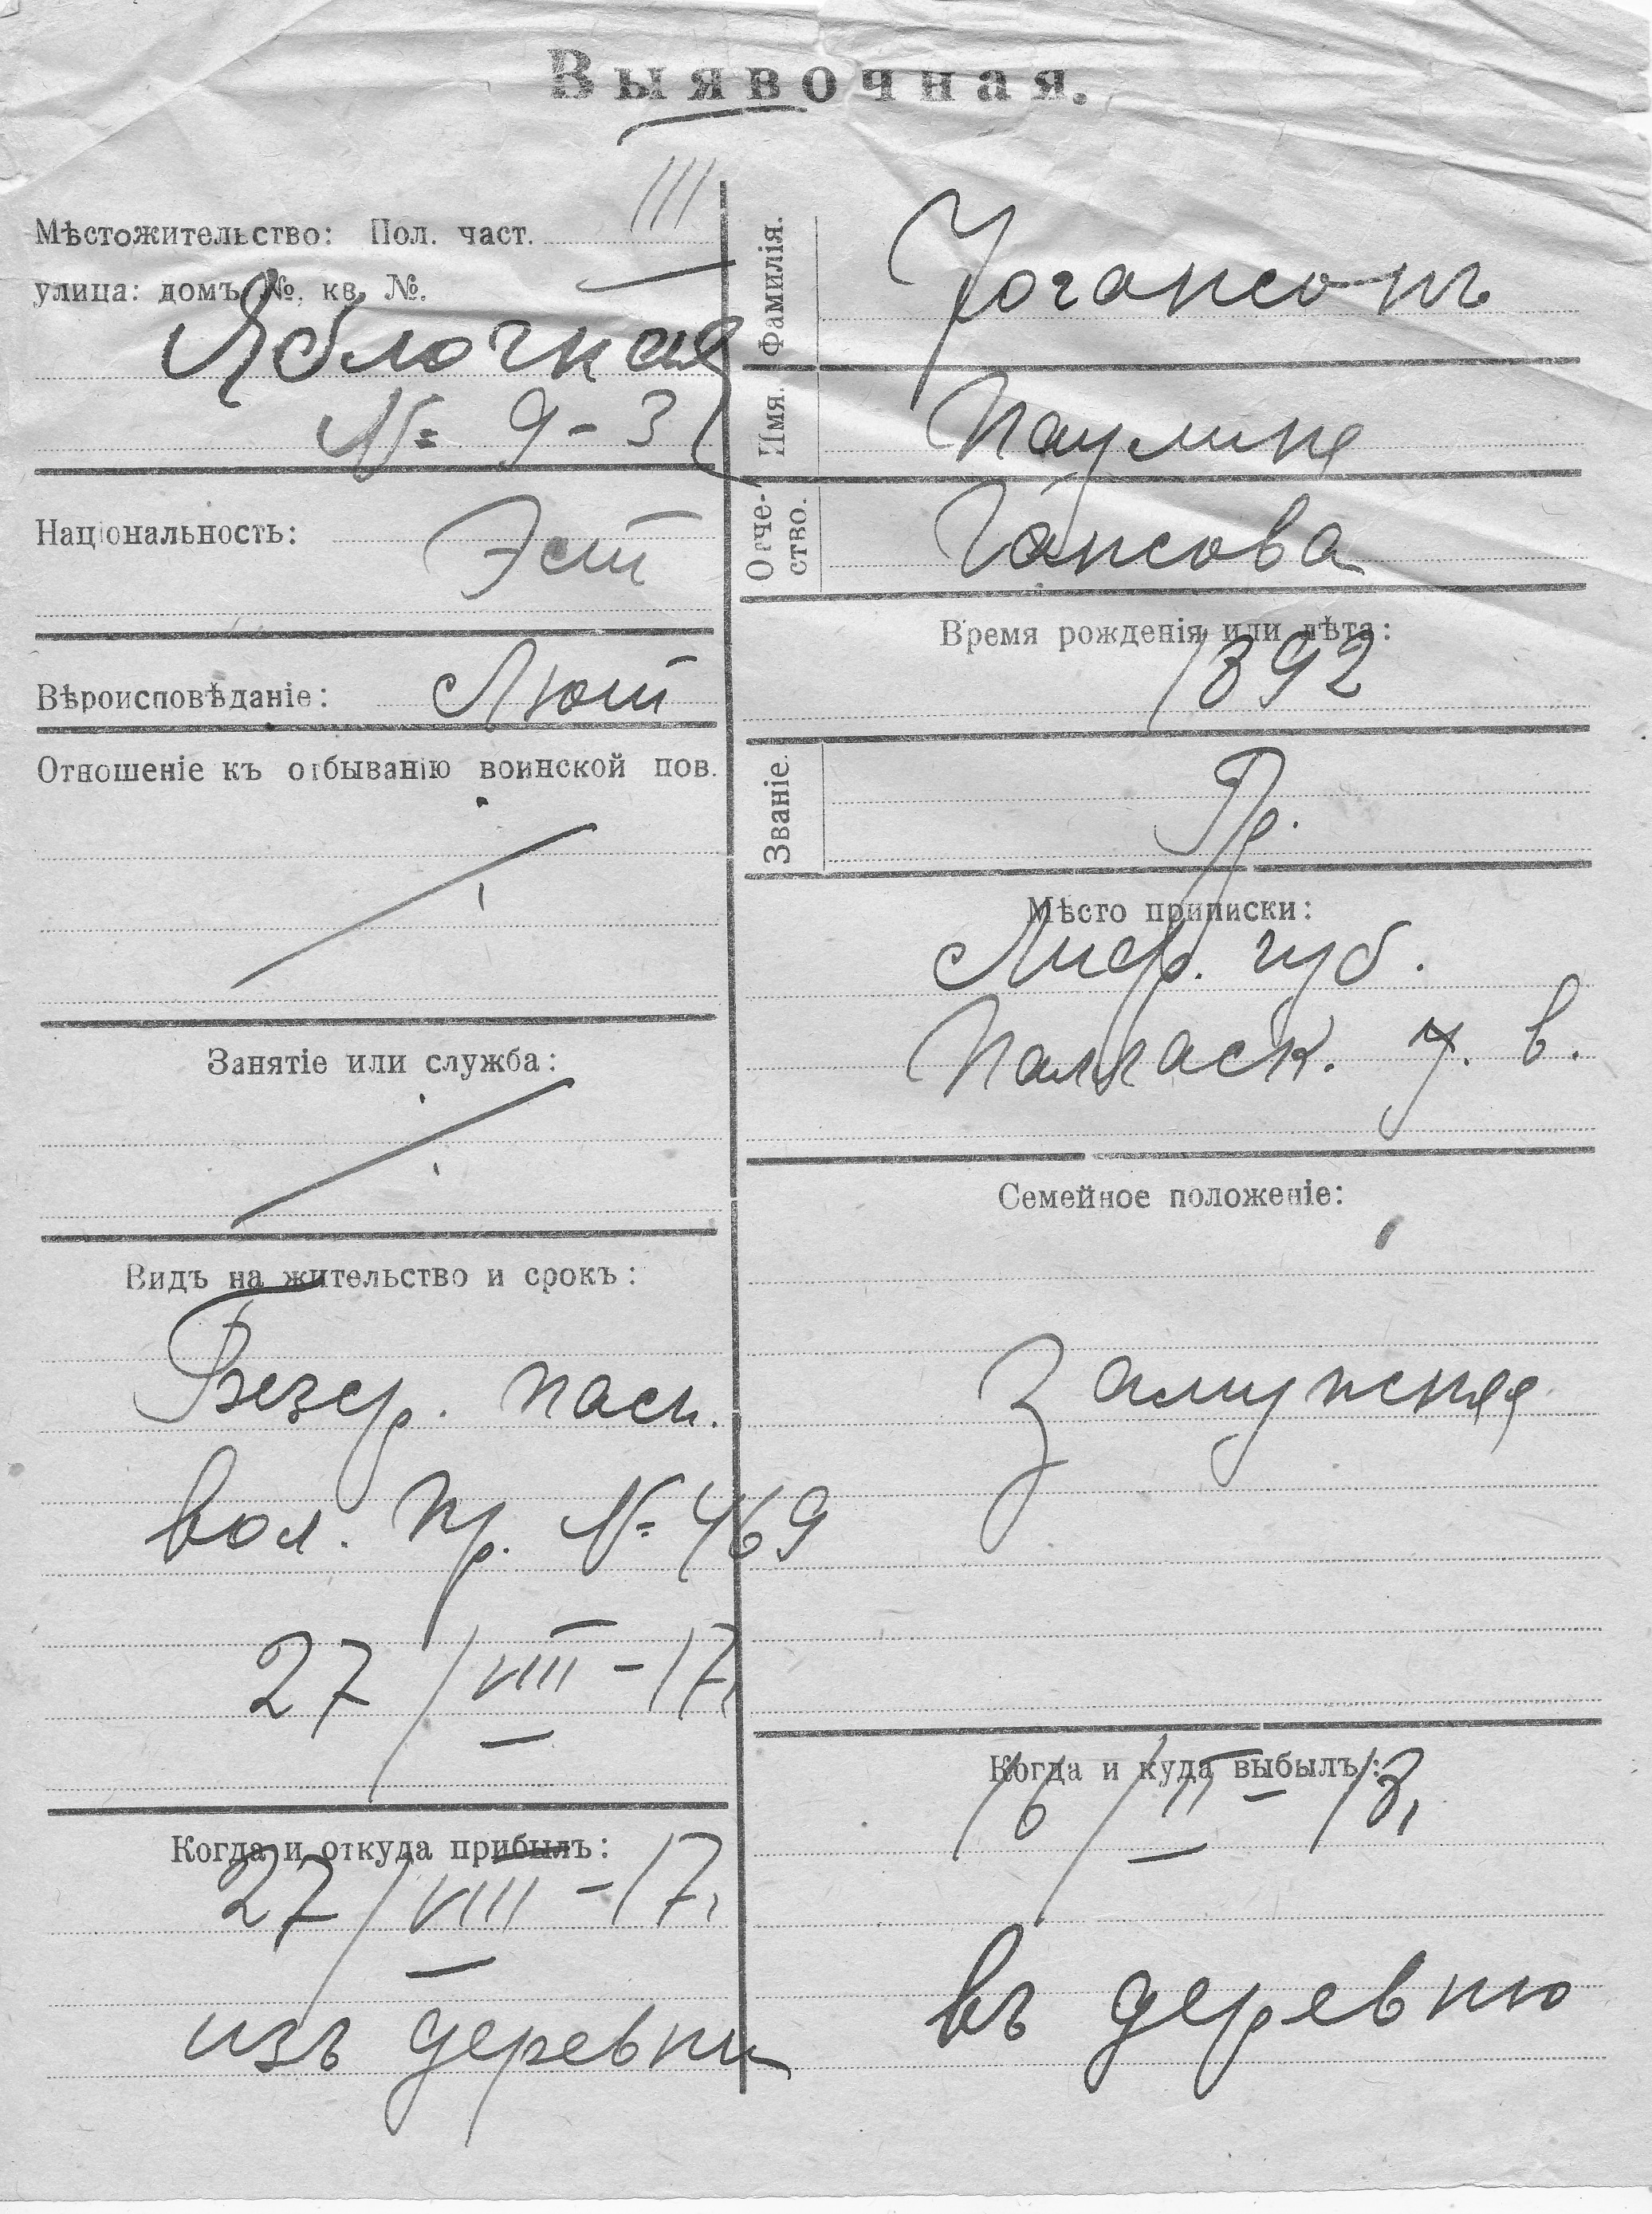 Выявочная.
Мѣстожительство: Пол. част. III
улица: домъ №, кв. №.
Яблочная
№ 9-3
Національность: Эст
Вѣроисповѣданіе: Лют
Отношеніе къ отбыванію воинской пов.
Занятіе или служба:
Видъ на жительство и срокъ:
Безср. пасп.
вол. пр. № 469
27/VIII-17
Когда и откуда прибылъ:
27/VIII-17
изъ деревни
Фамилія. Іогансонъ
Имя. Паулине
Отчество. Гансова
Время рожденія или лѣта:
1892
Званіе. Кр.
Мѣсто приписки:
Лифл. губ.
у. в.
Семейное положеніе:
Замужняя
Когда и куда выбылъ:
16/II-
въ деревню